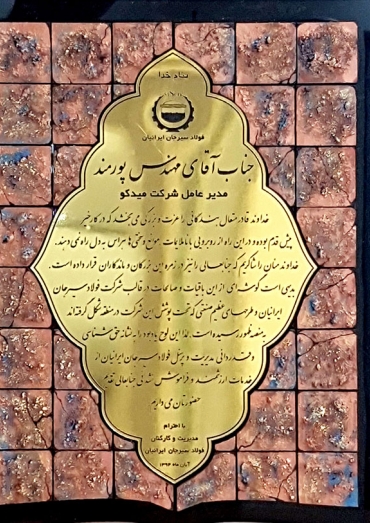 بنام خدا
فولاد سیرجان ایرانیان
جناب آقای مهندس پورمند
مدیر عامل شرکت میدکو
خداوند قادر متعال بندگانی را عزت و بزرگی می بخشد که در کار خیر
پیش قدم بوده و در این راه از رویارویی با ناملایمات هیچ و هراس به دل راه نمی دهند.
خداوند منان را شاکریم که جنابعالی را نیز در زمره این بزرگان و ماندگاران قرار داده است.
بدیهی است گوشه ای از این باقیات و صالحات در قالب شرکت فولاد سیرجان
ایرانیان و طرحهای عظیم صنعتی که تحت پوشش این شرکت در منطقه شکل گرفته اند
به منصه ظهور رسیده است. لذا این لوح یادبود را به نشانه حق شناسی
و قدردانی مدیریت و پرسنل فولاد سیرجان ایرانیان از
خدمات ارزشمند و فراموش نشدنی جنابعالی تقدیم
حضورتان می داریم
با احترام
مدیریت و کارکنان
فولاد سیرجان ایرانیان
آبان ماه ۱۳۹۴